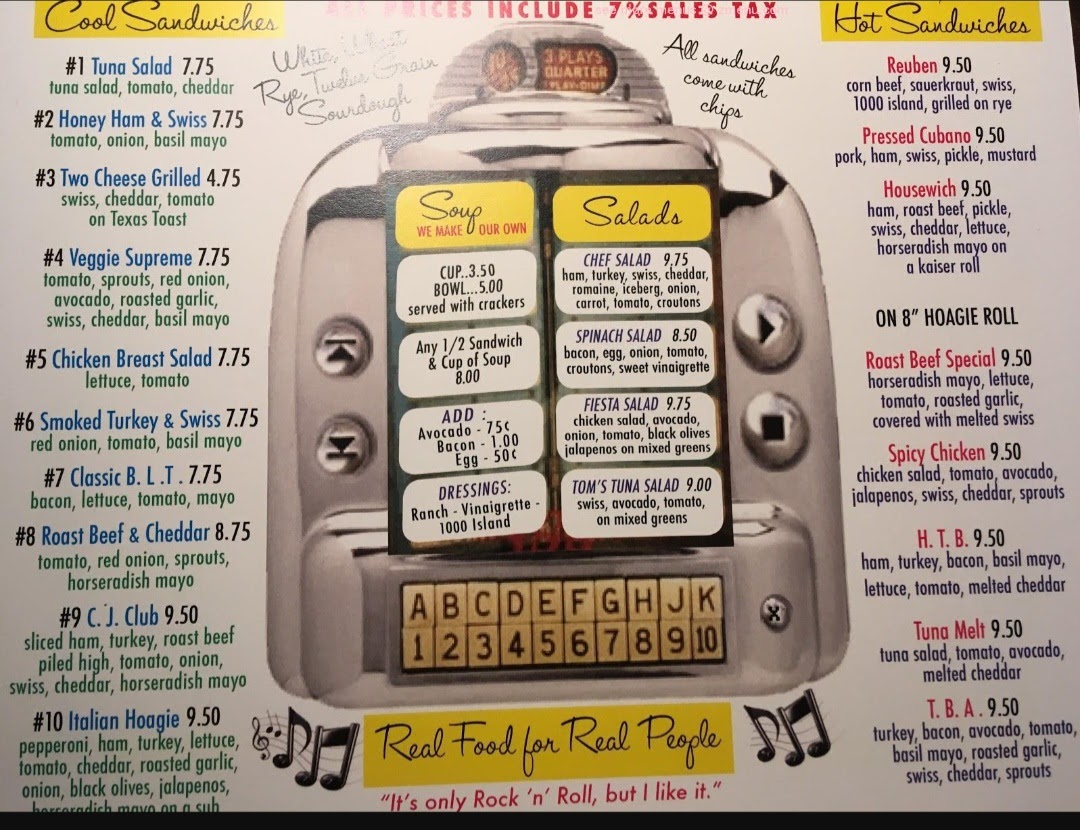 Cool Sandwiches
#1 Tuna Salad 7.75
tuna salad, tomato, cheddar
#2 Honey Ham & Swiss 7.75
tomato, onion, basil mayo
#3 Two Cheese Grilled 4.75
swiss, cheddar, tomato
on Texas Toast
#4 Veggie Supreme 7.75
tomato, sprouts, red onion,
avocado, roasted garlic,
swiss, cheddar, basil mayo
#5 Chicken Breast Salad 7.75
lettuce, tomato
#6 Smoked Turkey & Swiss 7.75
red onion, tomato, basil mayo
#7 Classic B. L .T . 7.75
bacon, lettuce, tomato, mayo
#8 Roast Beef & Cheddar 8.75
tomato, red onion, sprouts,
horseradish mayo
#9 C. J. Club 9.50
sliced ham, turkey, roast beef
piled high, tomato, onion,
swiss, cheddar, horseradish mayo
#10 Italian Hoagie 9.50
pepperoni, ham, turkey, lettuce,
tomato, cheddar, roasted garlic,
onion, black olives, jalapenos,
horseradish mayo on a sub
ALL PRICES INCLUDE 7% SALES TAX
White, Wheat
Rye, Twelve Grain
Sourdough
3 PLAYS
QUARTER
PLAY-DIME
All sandwiches
come with
chips
Soup
WE MAKE OUR OWN
CUP..3.50
BOWL...5.00
served with crackers
Any 1/2 Sandwich
& Cup of Soup
8.00
ADD :
Avocado - 75¢
Bacon - 1.00
Egg - 50¢
DRESSINGS:
Ranch - Vinaigrette -
1000 Island
Salads
CHEF SALAD 9.75
ham, turkey, swiss, cheddar,
romaine, iceberg, onion,
carrot, tomato, croutons
SPINACH SALAD 8.50
bacon, egg, onion, tomato,
croutons, sweet vinaigrette
FIESTA SALAD 9.75
chicken salad, avocado,
onion, tomato, black olives
jalapenos on mixed greens
TOM'S TUNA SALAD 9.00
swiss, avocado, tomato,
on mixed greens
A B C D E F G H J K
1 2 3 4 5 6 7 8 9 10
Real Food for Real People
"It's only Rock 'n' Roll, but I like it."
Hot Sandwiches
Reuben 9.50
corn beef, sauerkraut, swiss,
1000 island, grilled on rye
Pressed Cubano 9.50
pork, ham, swiss, pickle, mustard
Housewich 9.50
ham, roast beef, pickle,
swiss, cheddar, lettuce,
horseradish mayo on
a kaiser roll
ON 8" HOAGIE ROLL
Roast Beef Special 9.50
horseradish mayo, lettuce,
tomato, roasted garlic,
covered with melted swiss
Spicy Chicken 9.50
chicken salad, tomato, avocado,
jalapenos, swiss, cheddar, sprouts
H. T. B. 9.50
ham, turkey, bacon, basil mayo,
lettuce, tomato, melted cheddar
Tuna Melt 9.50
tuna salad, tomato, avocado,
melted cheddar
T. B. A . 9.50
turkey, bacon, avocado, tomato,
basil mayo, roasted garlic,
swiss, cheddar, sprouts